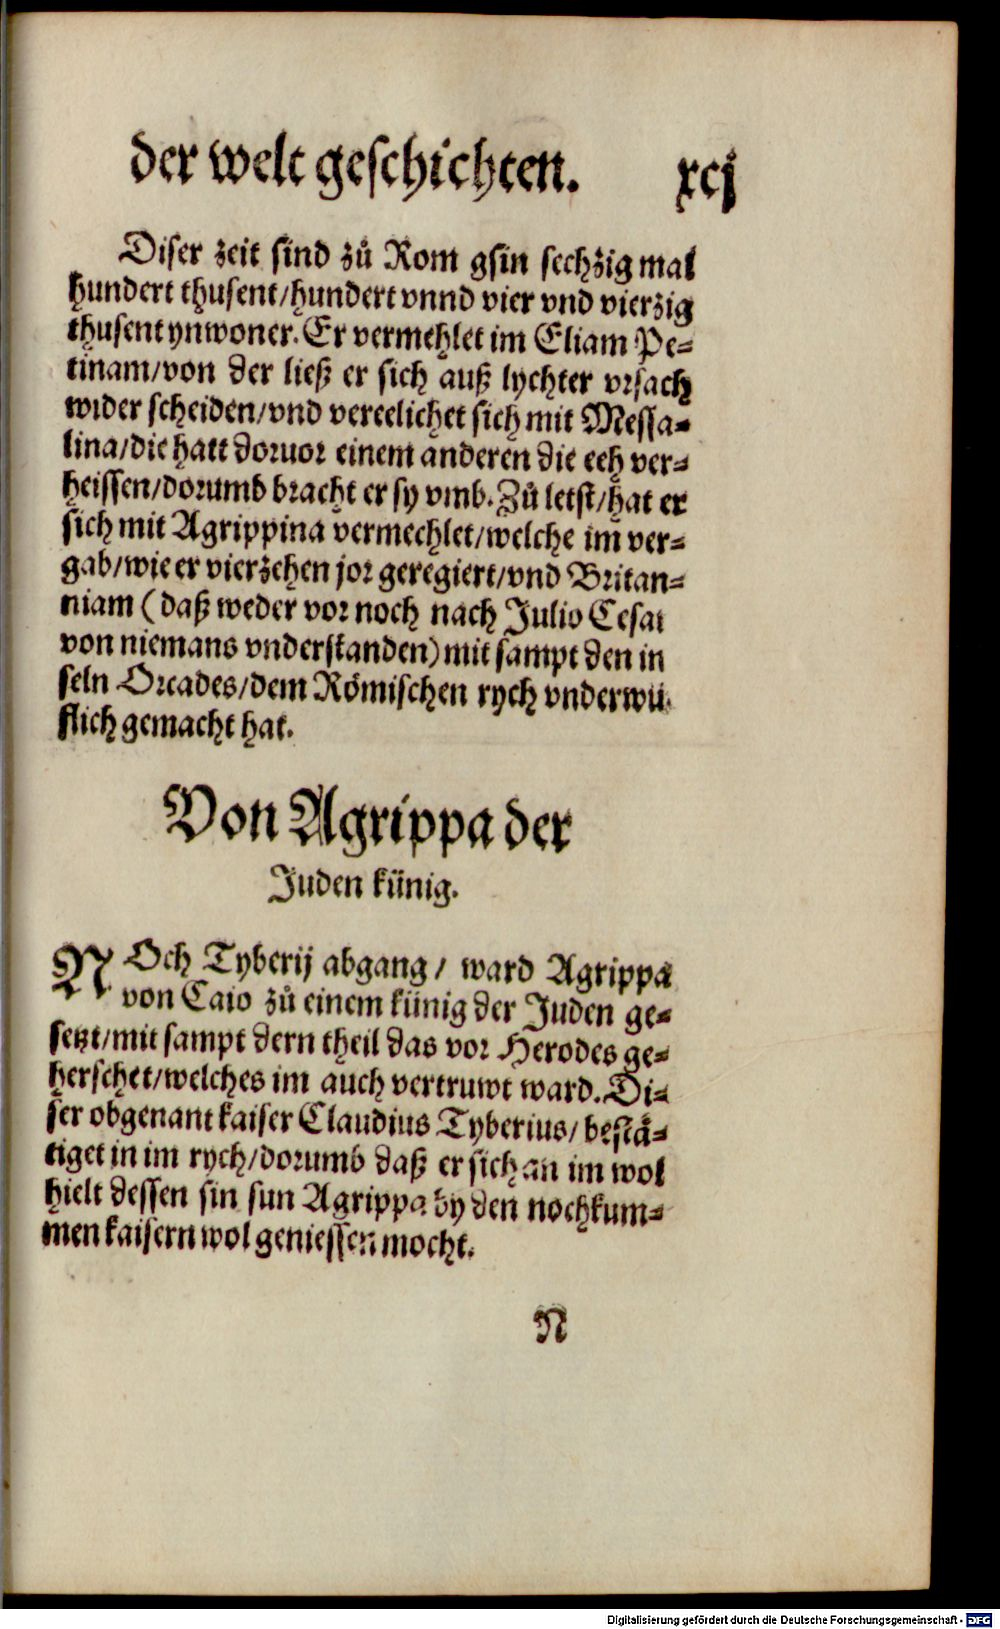 der welt geschichten. xcj
Diser zeit sind zů Rom gsin sechzig mal
hundert thusent/hundert vnnd vier vnd vierzig
thusent ynwoner. Er vermehlet im Eliam Pe-
tinam/von der ließ er sich auß lychter vrsach
wider scheiden/vnd vereelichet sich mit Messa-
lina/die hatt doruor einem anderen die eeh ver-
heissen/dorumb bracht er sy vmb. Zů letst/hat er
sich mit Agrippina vermechlet/welche im ver-
gab/wie er vierzehen jor geregiert/vnd Britan-
niam (daß weder vor noch nach Julio Cesar
von niemans vnderstanden) mit sampt den in
seln Orcades/dem Römischen rych vnderwü
flich gemacht hat.
Von Agrippa der
Juden künig.
NOch Tyberij abgang/ ward Agrippa
von Caio zů einem künig der Juden ge-
setzt/mit sampt dern theil das vor Herodes ge-
herschet/welches im auch vertruwt ward. Di-
ser obgenant kaiser Claudius Tyberius/ bestä-
tiget in im rych/dorumb daß er sich an im wol
hielt dessen sin sun Agrippa by den nochkum-
men kaisern wol geniessen mocht.
N
Digitalisierung gefördert durch die Deutsche Forschungsgemeinschaft - DFG